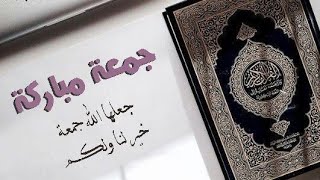 جمعة مباركة
جعلها الله جمعة
خير لنا ولكم
القرآن الكريم